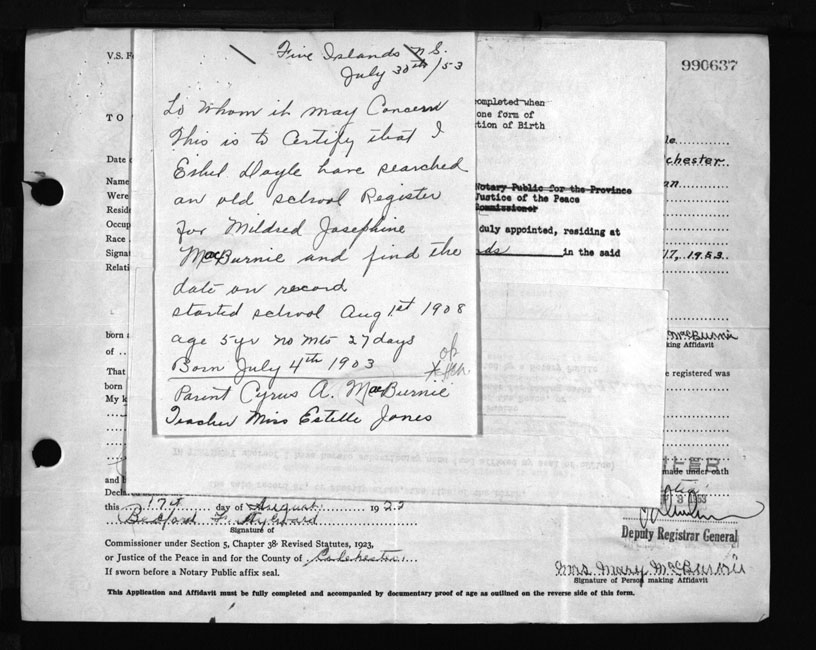 V.S. F
990637
Five Islands N.S.
July 30th/53
To Whom it may Concern
This is to Certify that I
Ethel Doyle have searched
an old school Register
for Mildred Josephine
MacBurnie and find the
date on record
started school Aug 1st 1908
age 5yr no mts 27 days
Born July 4th 1903
ok
Parent Cyrus A. MacBurnie
Teacher Miss Estelle Jones
completed when
one form of
tion of Birth
Notary Public for the Province
Justice of the Peace
Commissioner
duly appointed, residing at
nds in the said
TO
Date o
Name
Were
Resid
Occup
Race
Signat
Relati
le
chester
an
17, 1953
McBurnie
king Affidavit
born a
of
That
born
My k
e registered was
and b
made under oath
Declare
this 17th day of August 1953
Signature of
Commissioner under Section 5, Chapter 38 Revised Statutes, 1923,
or Justice of the Peace in and for the County of Colchester
If sworn before a Notary Public affix seal.
Deputy Registrar General
Mrs Mary McBurnie
Signature of Person making Affidavit
This Application and Affidavit must be fully completed and accompanied by documentary proof of age as outlined on the reverse side of this form.